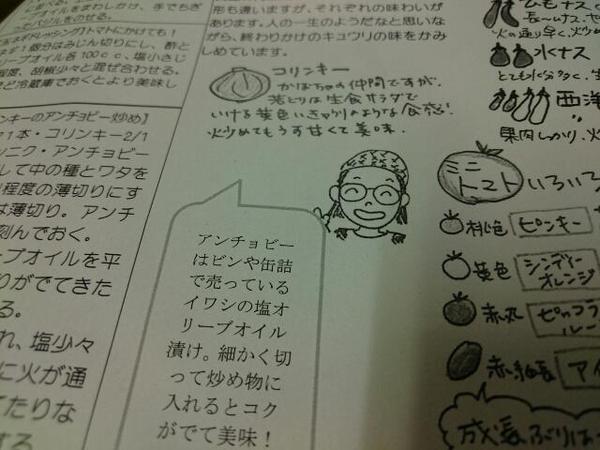 まわしかけ、手でちぎ
バジルをのせる。
ドレッシング】トマトにかけても!
個分はみじん切りにし、酢と
ーブオイル各100cc、塩小さじ
程度、胡椒少々と混ぜ合わせる。
ど冷蔵庫でおくとより美味し
ンキーのアンチョビー炒め】
1本・コリンキー2/1
ンニク・アンチョビー
して中の種とワタを
程度の薄切りにす
は薄切り。アンチ
刻んでおく。
ーブオイルを平
りがでてきた
る。
れ、塩少々
に火が通
てたりな
する
形も違いますが、それぞれの味わいが
あります。人の一生のようだなと思いな
がら、終わりかけのキュウリの味をかみ
しめています。
コリンキー
かぼちゃの仲間ですが、
若どりは生食サラダで
いける黄色いきゅうりのような食感!
炒めてもうす甘くて美味。
アンチョビー
はビンや缶詰
で売っている
イワシの塩オ
リーブオイル
漬け。細かく切
って炒め物に
入れるとコク
がでて美味!
長〜いナス、や
火の通り早く、火炒め
水ナス
とても水分多く、生
西洋
果肉しっかり、
ミニ
トマト
いろいろ
桃色 ピンキー
黄色 シンディー
オレンジ
赤丸
赤・細長 アイ
成長ぶりは